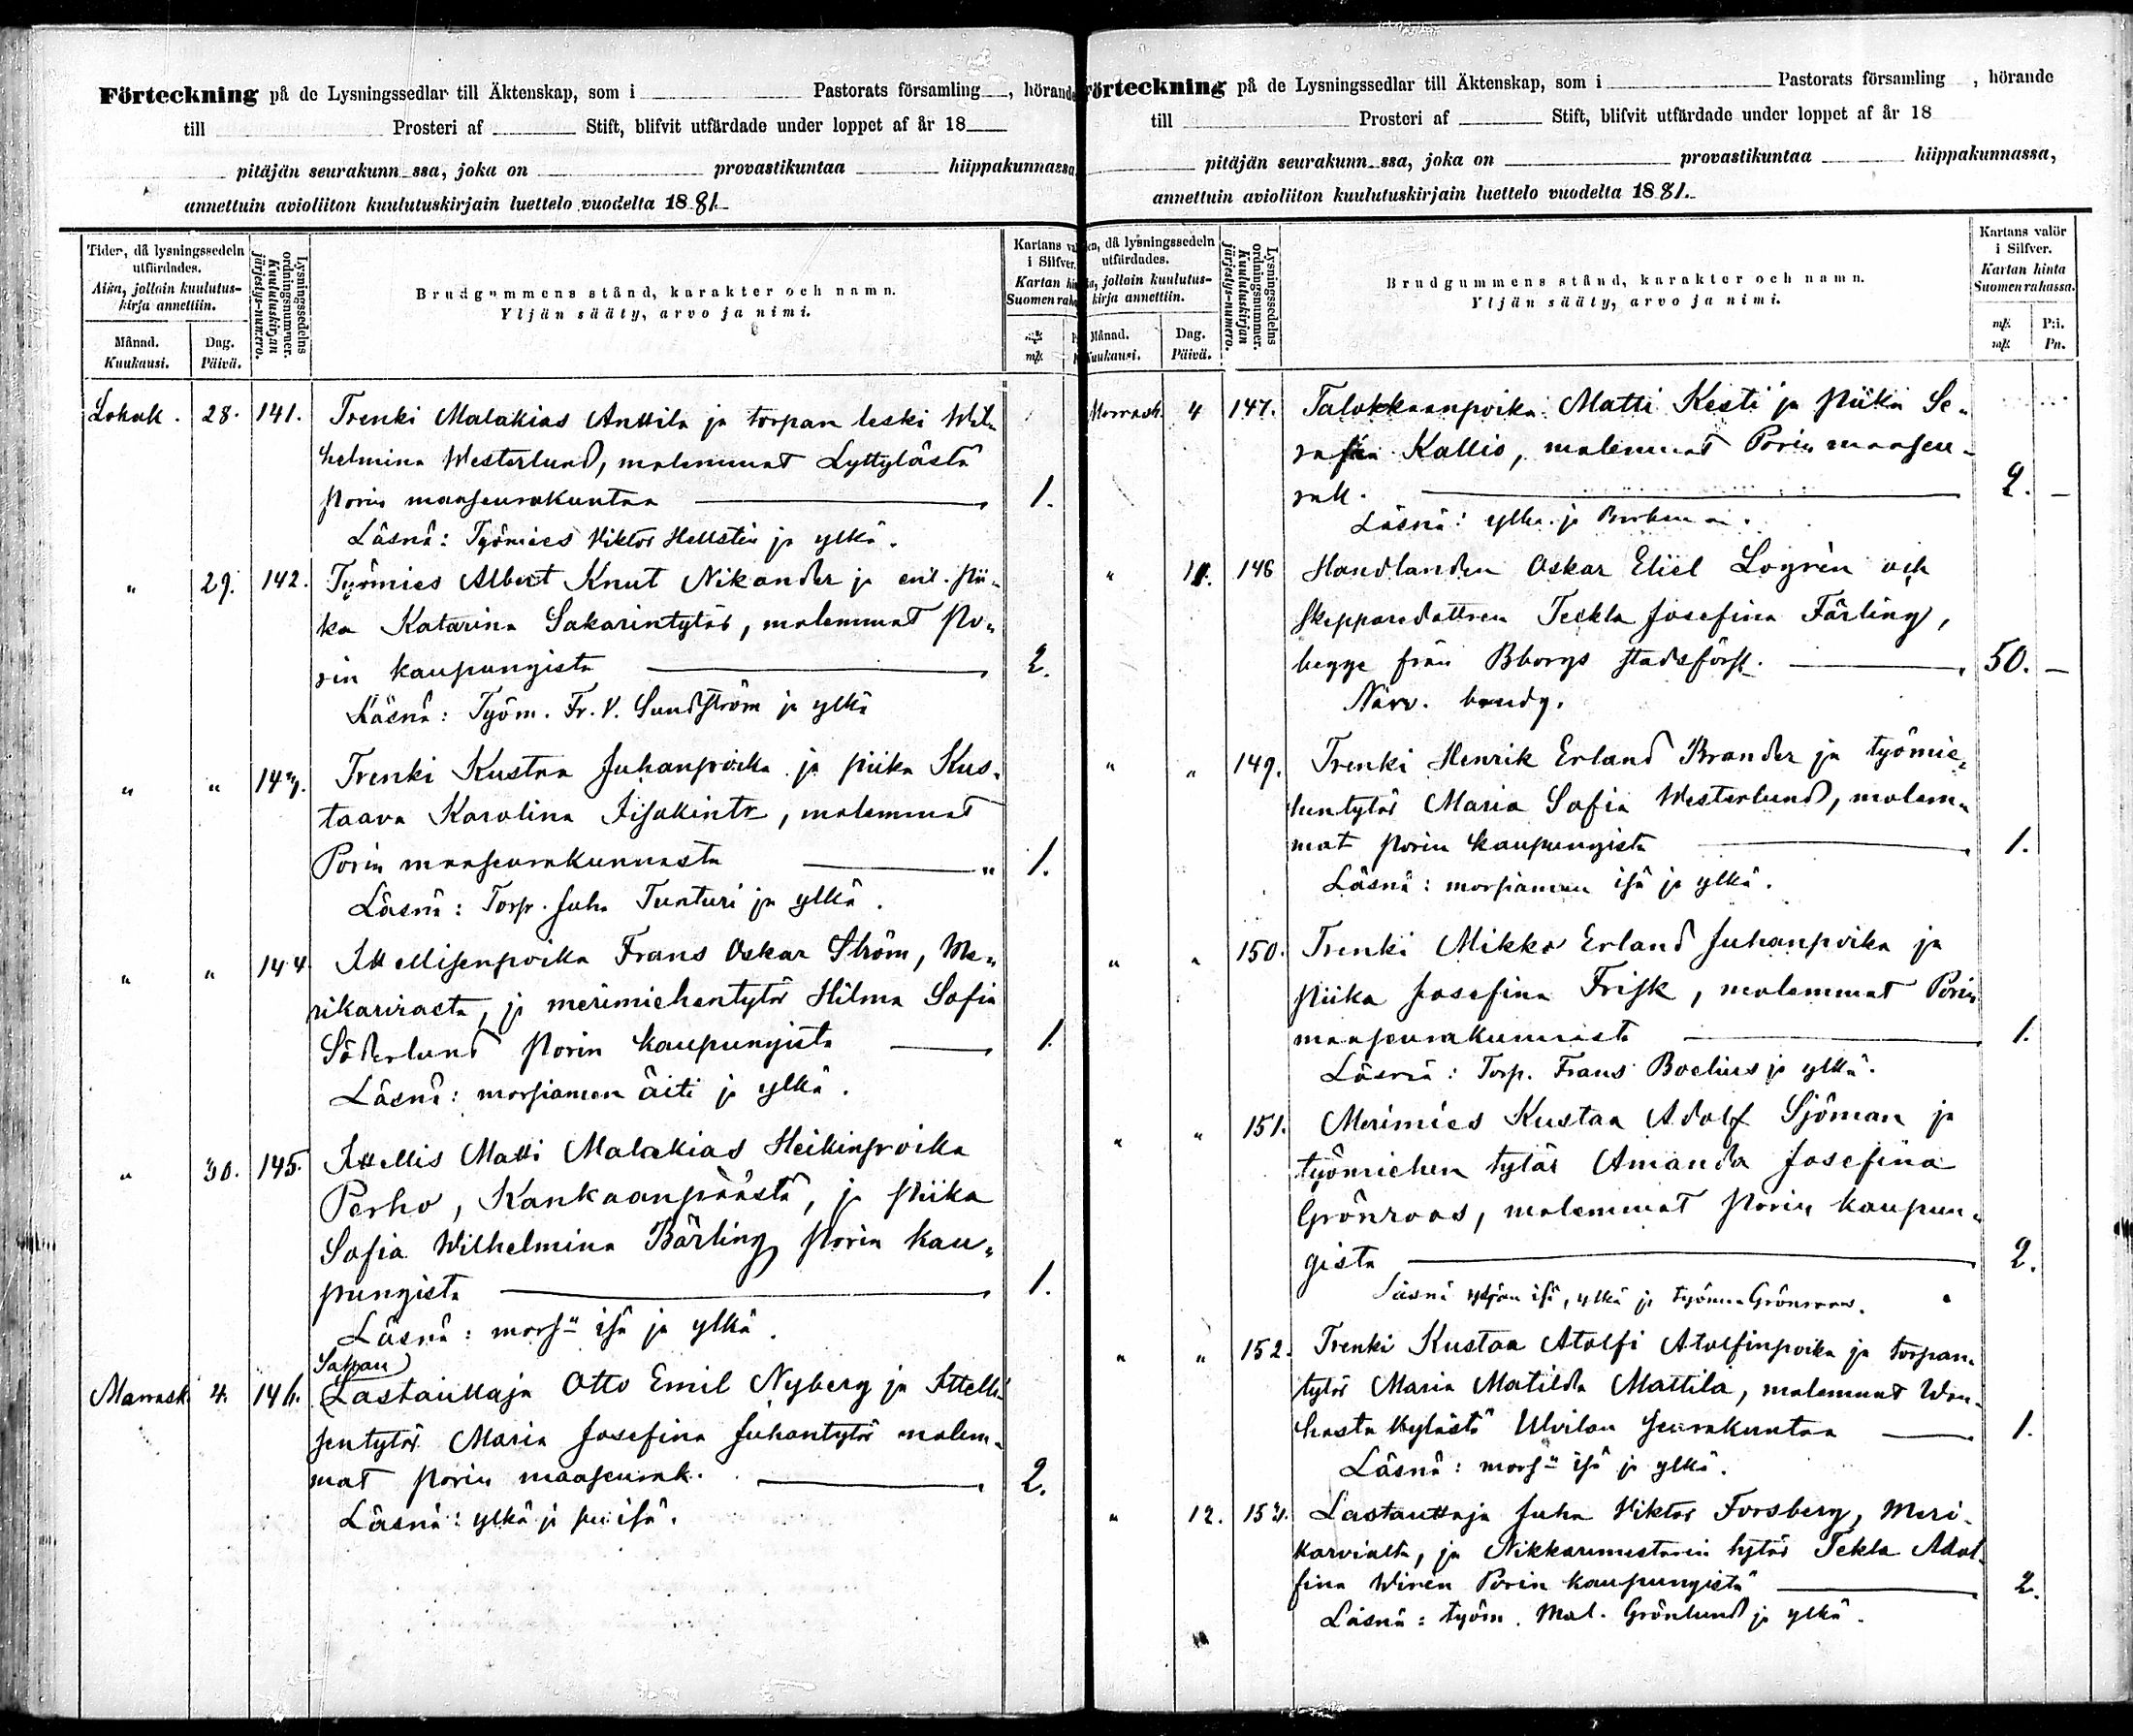 Förteckning på de Lysningssedlar till Äktenskap, som i Pastorats församling, hörande
till Prosteri af Stift, blifvit utfärdade under loppet af år 18
pitäjän seurakunn ssa, joka on provastikuntaa hiippakunnassa
annettuin avioliiton kuulutuskirjain luettelo vuodelta 1881.
Tider, då lysningssedeln utfärdades.
Aika, jolloin kuulutuskirja annettiin.
Månad. Kuukausi.
Dag. Päivä.
Lysningssedelns ordningsnummer.
Kuulutuskirjan järjestys-numero.
Brudgummens stånd, karakter och namn.
Yljän sääty, arvo ja nimi.
Kartans
i Silfver.
Kartan
Suomen
Lokak. 28. 141. Trenki Malakias Anttila ja torpan leski Wil„
helmina Westerlund, molemmat Lyttylästä
Porin maaseurakuntaa 1.
Läsnä: Työmies Viktor Hellstén ja ylkä.
„ 29. 142. Työmies Albert Knut Nikander ja entl. pii„
ka Katarina Sakarintytär, molemmat Po„
rin kaupungista 2.
Läsnä: Työm. Fr. V. Sundström ja ylkä
„ „ 143. Trenki Kustaa Juhanpoika ja piika Kus„
taava Karolina Iisakintr, molemmat
Porin maaseurakunnasta „ 1.
Läsnä: Torp. Juha Tunturi ja ylkä.
„ „ 144. Ittellisenpoika Frans Oskar Ström, Me„
rikarviasta, ja merimiehentytär Hilma Sofia
Söderlund Porin kaupungista 1.
Läsnä: morsiamen äiti ja ylkä.
„ 30. 145. Ittellis Matti Malakias Heikinpoika
Perho, Kankaanpäästä, ja piika
Sofia Wilhelmina Bärling Porin kau„
pungista 1.
Läsnä: morsn isä ja ylkä.
Marrask. 4. 146. Lastauttaja Otto Emil Nyberg ja Ittelli
sentytär Maria Josefina Juhantytär molem„
mat Porin maaseurak. 2.
Läsnä: ylkä ja isä.
Förteckning på de Lysningssedlar till Äktenskap, som i Pastorats församling, hörande
till Prosteri af Stift, blifvit utfärdade under loppet af år 18
pitäjän seurakunn ssa, joka on provastikuntaa hiippakunnassa,
annettuin avioliiton kuulutuskirjain luettelo vuodelta 1881.
då lysningssedeln utfärdades.
jolloin kuulutuskirja annettiin.
Månad. Kuukausi.
Dag. Päivä.
Lysningssedelns ordningsnummer.
Kuulutuskirjan järjestys-numero.
Brudgummens stånd, karakter och namn.
Yljän sääty, arvo ja nimi.
Kartans valör
i Silfver.
Kartan hinta
Suomen rahassa.
mk P:i.
mk Pn.
Marrask. 4 147. Talokkaanpoika Matti Kesti ja piika Se„
rafia Kallio, molemmat Porin maaseu„
rak. 2. —
Läsnä: ylkä ja
„ 11. 148 Handlanden Oskar Eliel Logrén och
skepparedottren Teckla Josefina Färling,
begge från Bborgs stadsförs. 50. —
Närv. brudg.
„ „ 149. Trenki Henrik Erland Brander ja työmie„
hentytär Maria Sofia Westerlund, molem„
mat Porin kaupungista 1.
Läsnä: morsiamen isä ja ylkä.
„ „ 150. Trenki Mikko Erland Juhanpoika ja
piika Josefina Frisk, molemmat Porin
maaseurakunnasta 1.
Läsnä: Torp. Frans Boelius ja ylkä.
„ „ 151. Merimies Kustaa Adolf Sjöman ja
työmiehen tytär Amanda Josefina
Grönroos, molemmat Porin kaupun„
gista 2.
Läsnä yljän isä, ylkä ja työmies Grönroos.
„ „ 152. Trenki Kustaa Atolfi Atolfinpoika ja torpan„
tytär Maria Matilda Mattila, molemmat Wan„
hasta kylästä Ulvilan seurakuntaa 1.
Läsnä: morsn isä ja ylkä.
„ 12. 153. Lastauttaja Juha Viktor Forsberg, Meri„
karvialta, ja Nikkarimestarin tytär Tekla Adol„
fina Wirén Porin kaupungista 2.
Läsnä: työm. Mal. Grönlund ja ylkä.